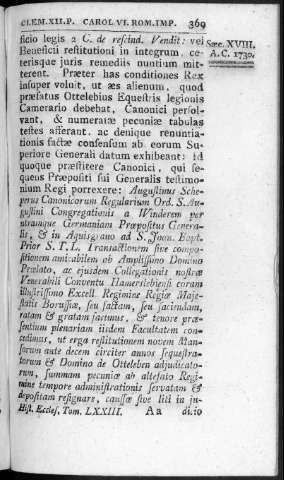 CLEM.XII.P. CAROL VI. ROM.IMP. 369
ficio legis 2 C. de rescind. Vendit: vel
Beneficii restitutioni in integrum, ce-
terisque juris remediis nuntium mit-
terent. Præter has conditiones Rex
insuper voluit, ut æs alienum, quod
præfatus Ottelebius Equestris legionis
Camerario debebat, Canonici persol-
vant, & numeratæ pecuniæ tabulas
testes afferant, ac denique renuntia-
tionis factæ consensum ab eorum Su-
periore Generali datum exhibeant: Id
quoque præstitere Canonici, qui se-
quens Præpositi sui Generalis testimo-
nium Regi porrexere: Augustinus Sche-
perus Canonicorum Regularium Ord. S. Au-
gustini Congregationis a Windesem per
utramque Germaniam Præpositus Genera-
lis, & in Aquisgrano ad S. Joan. Bapt.
Prior S. T. L. Transactionem sive compo-
sitionem amicabilem ab Amplissimo Domino
Prælato, ac ejusdem Collegationis nostræ
Venerabili Conventu Hamerslebiensi coram
illustrissimo Excell. Regimine Regiæ Maje-
statis Borussiæ, seu factam, seu faciendam,
ratam & gratam habemus, & tenore præ-
sentium plenariam iisdem Facultatem con-
cedimus, ut erga restitutionem novem Man-
sorum ante decem circiter annos sequestra-
torum & Domino de Otteleben adjudicato-
rum, summam pecuniæ ab altefato Regi-
mine tempore administrationis servatam &
depositam resignare, caussæ sive liti in ju-
Hist. Eccles, Tom. LXXIII. A a di.io
Sæc. XVIII.
A. C. 1730.